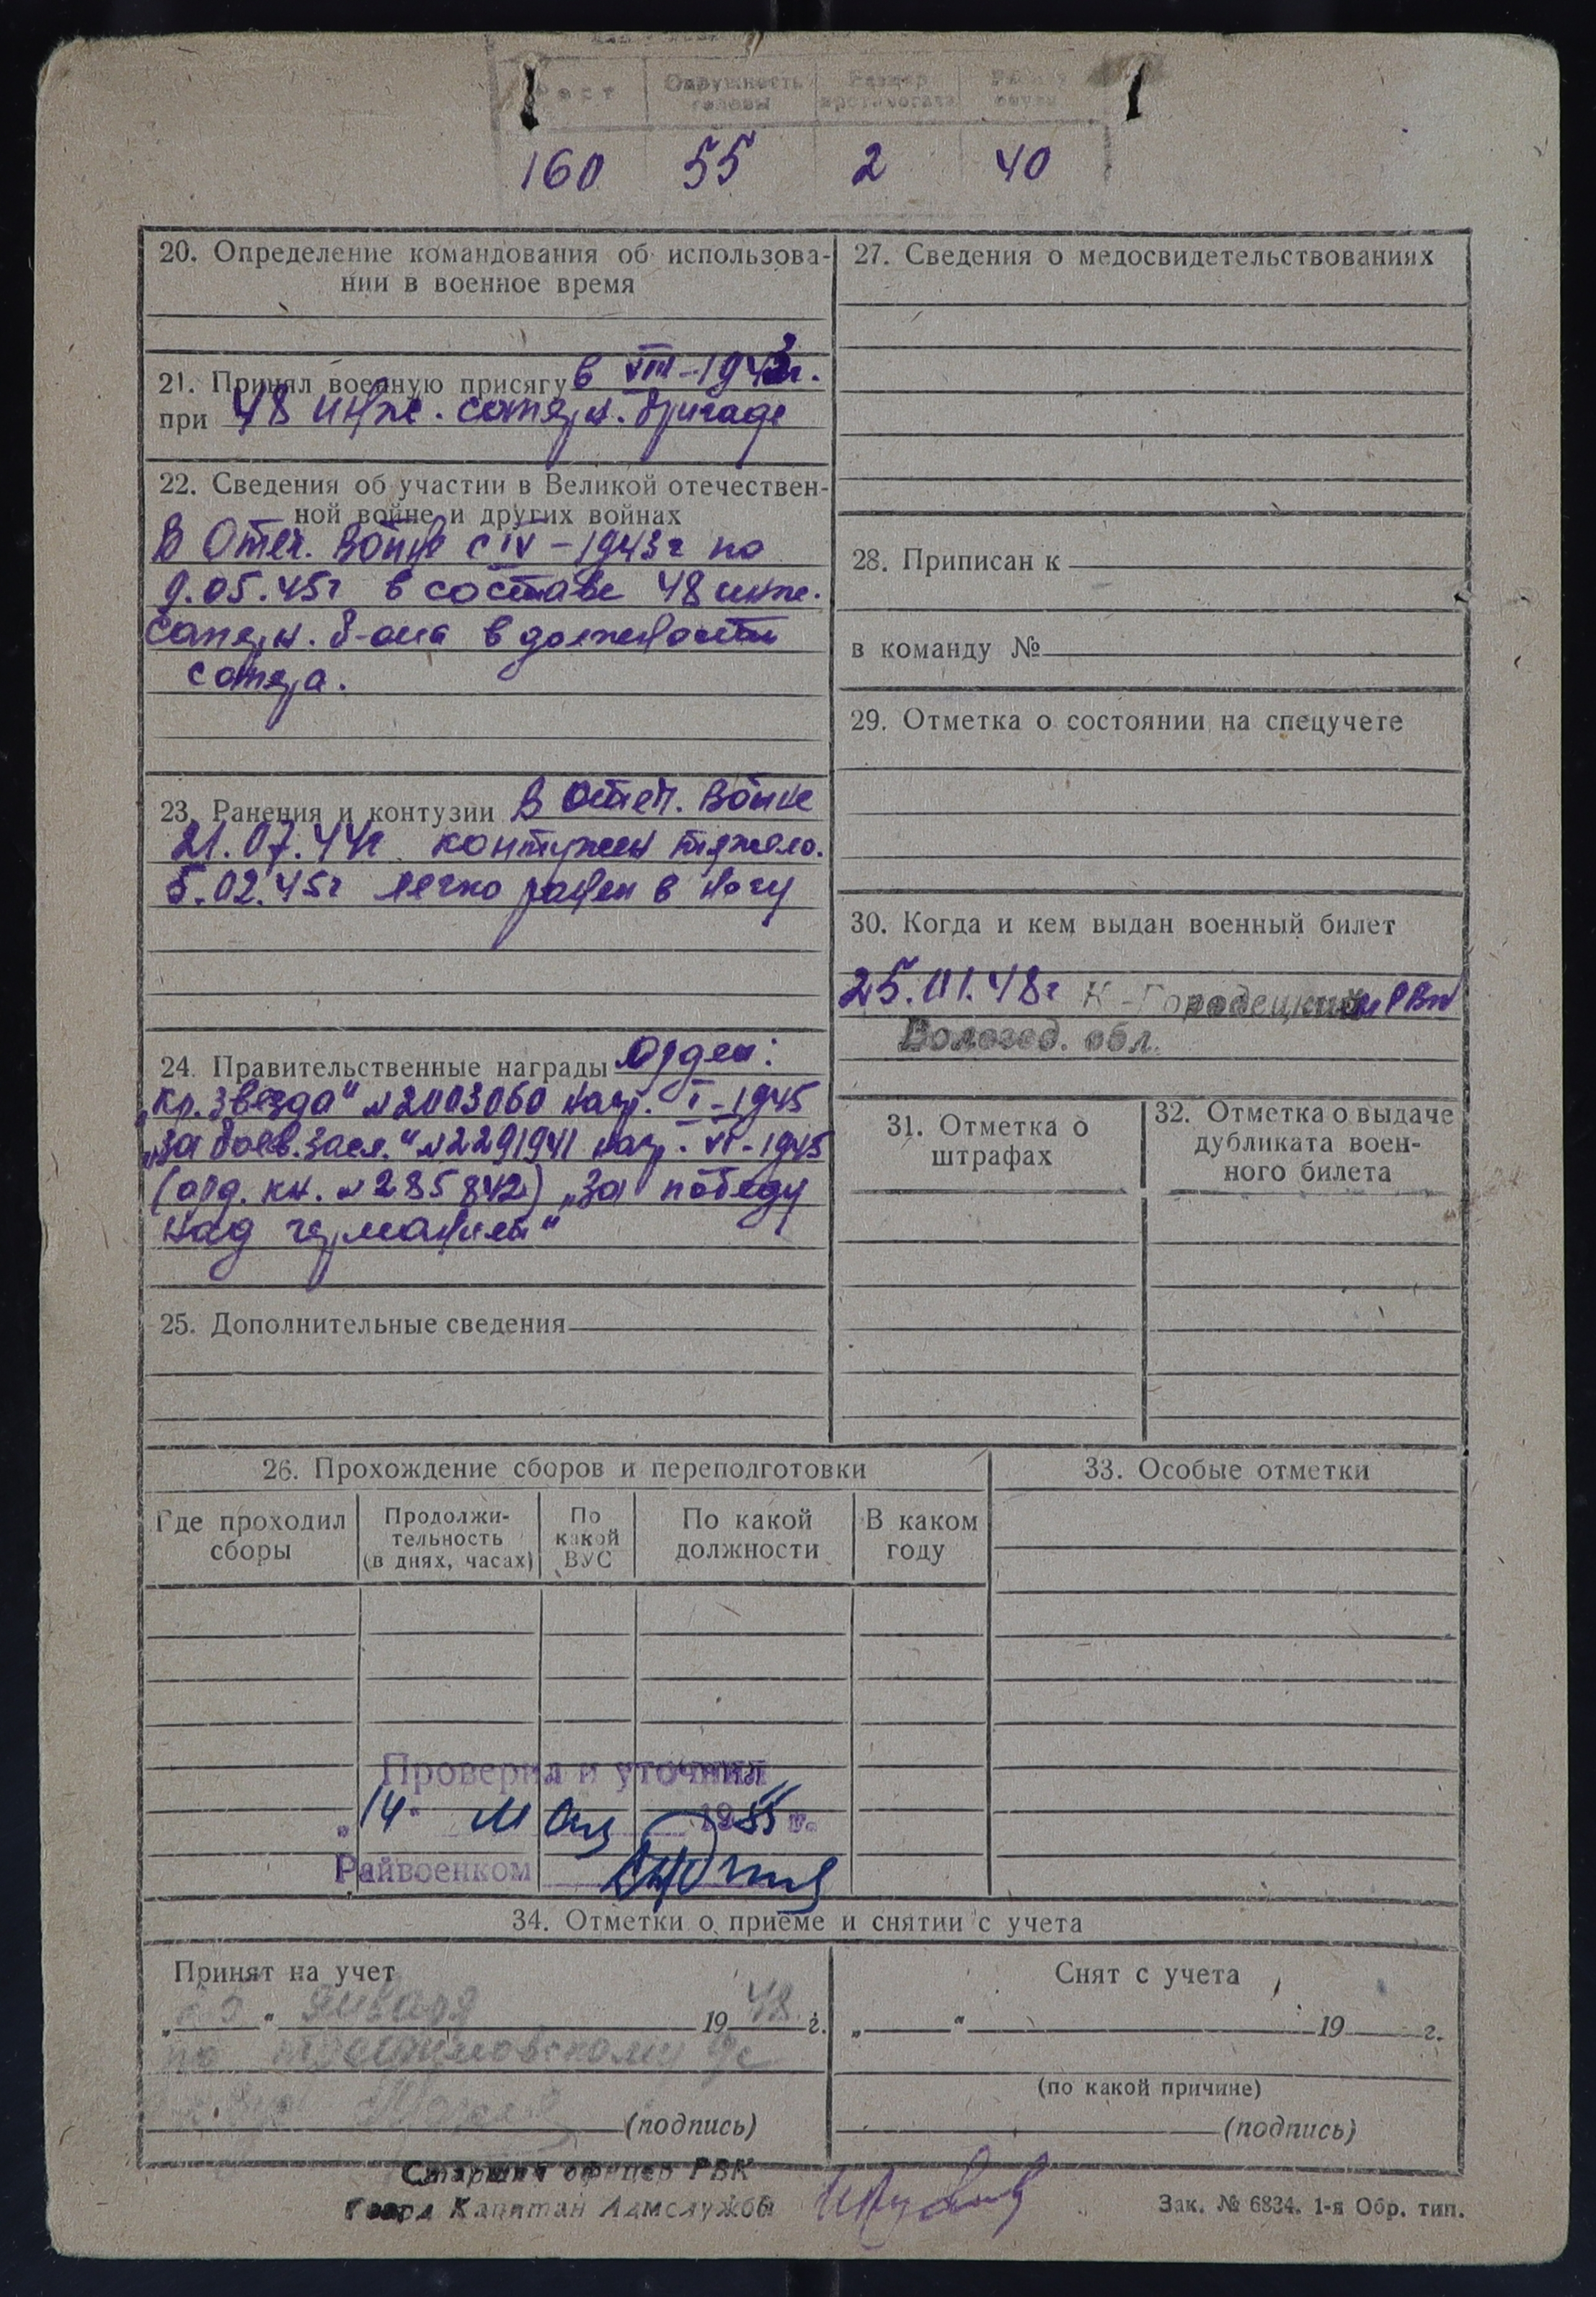 Рост Окружность головы Размер противогаза
160 55 2 40
20. Определение командования об использова-
нии в военное время
21. Принял военную присягу в VIII-1943г.
при 48 инже. саперн. бригаде
22. Сведения об участии в Великой отечествен-
ной войне и других войнах
В Отеч. войне с IV-1943г по
9.05.45г в составе 48 инже.
саперн. б-она в должности
сапера.
23. Ранения и контузии В Отеч. войне
21.07.44г контужен тяжело.
5.02.45г легко ранен в ногу
24. Правительственные награды Орден:
„Кр. Звезда" №2003060 нагр. I-1945
„За боев. засл." №2291941 нагр. VI-1945
(орд. кн. №285842) „За победу
над германией"
25. Дополнительные сведения
26. Прохождение сборов и переподготовки
Где проходил сборы
Продолжи-
тельность
(в днях, часах)
По
какой
ВУС
По какой
должности
В каком
году
Проверил и уточнил
„14" мая 1955 г.
Райвоенком
27. Сведения о медосвидетельствованиях
28. Приписан к
в команду №
29. Отметка о состоянии на спецучете
30. Когда и кем выдан военный билет
25.01.48г К-Городецким РВК
Вологод. обл.
31. Отметка о
штрафах
32. Отметка о выдаче
дубликата воен-
ного билета
33. Особые отметки
34. Отметки о приеме и снятии с учета
Принят на учет
„25" января 1948 г.
по
(подпись)
Снят с учета
„ " 19 г.
(по какой причине)
(подпись)
Старший офицер РВК
Гвард Капитан Адмслужбы
Зак. № 6834. 1-я Обр. тип.